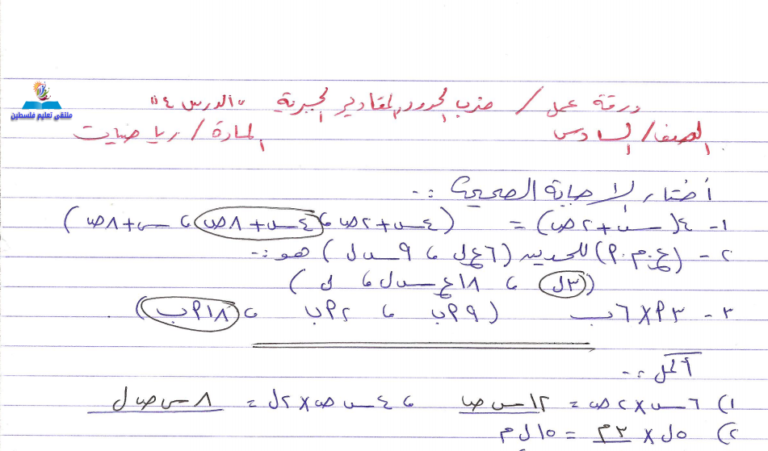 ملتقى تعليم فلسطين
ورقة عمل / ضرب الحدود المقادير الجبرية "الدرس ٤"
الصف/ السادس المادة / رياضيات
أختار الإجابة الصحيحة :-
١- ٤(س + ٢ص) = (٤س + ٢ص ، ٤س + ٨ص ، س + ٨ص)
٢- (ع.م.أ) للحدين (٦ع ل ، ٩س ل) هو :-
(٣ل ، ١٨ع س ل ، ل)
٣- ٣أ × ٦ب (٩أب ، ٢أب ، ١٨أب)
أكمل :-
١) ٦س × ٢ص = ١٢س ص ، ٤س ص × ٢ل = ٨س ص ل
٢) ٥ل × ٢م = ١٠ل م